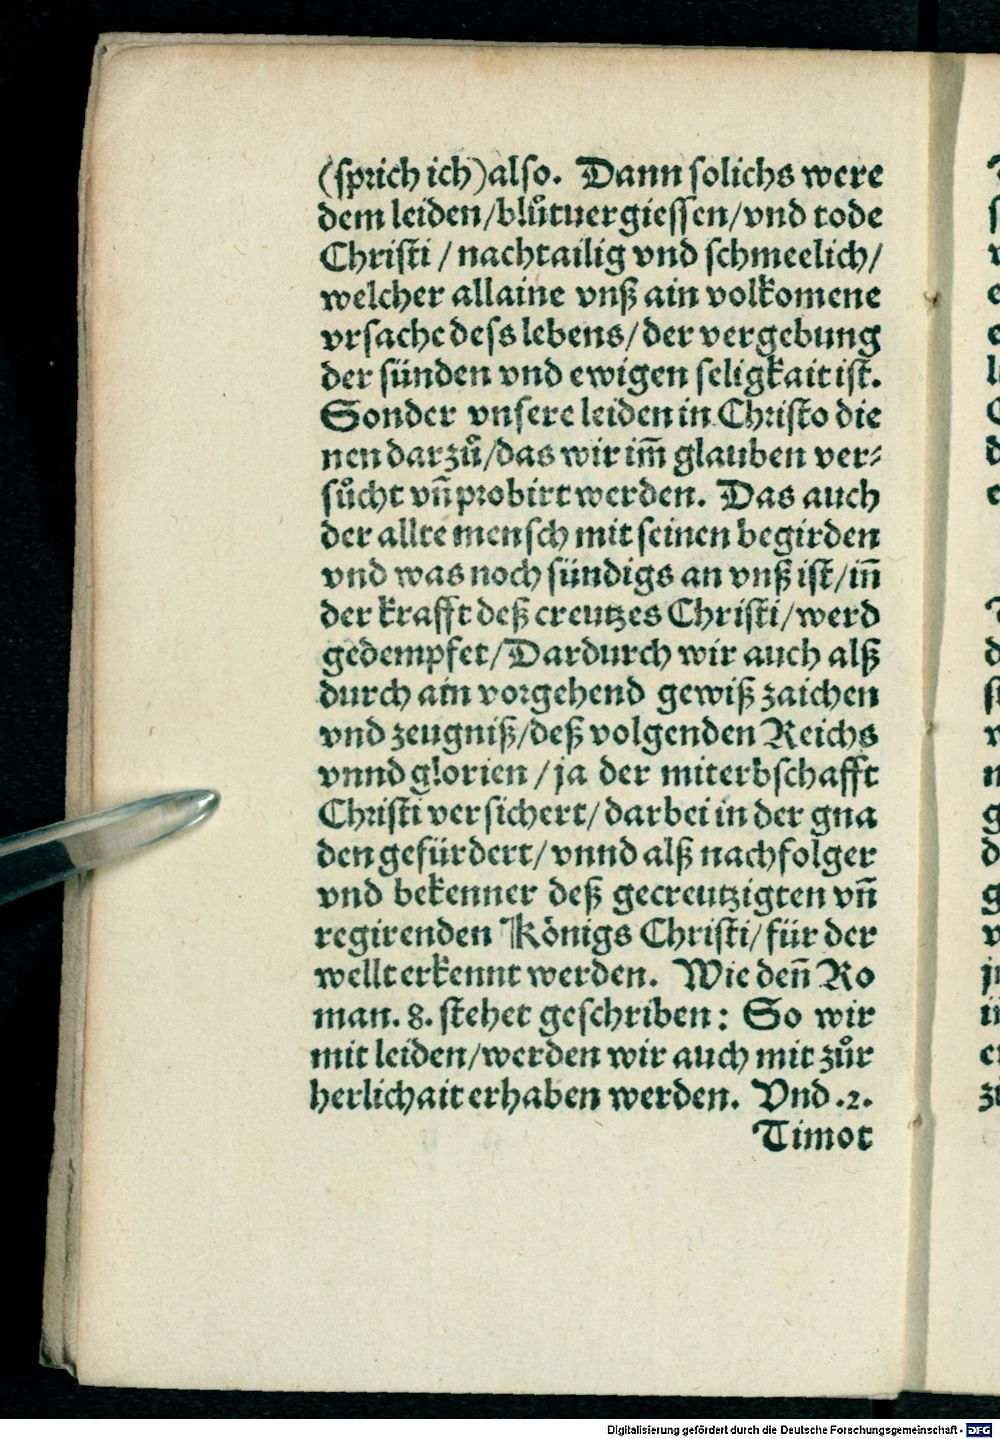 (sprich ich) also. Dann solichs were
dem leiden/blůtuergiessen/vnd tode
Christi / nachtailig vnd schmeelich/
welcher allaine vnß ain volkomene
vrsache dess lebens/ der vergebung
der sünden vnd ewigen seligkait ist.
Sonder vnsere leiden in Christo die
nen darzů/das wir im̃ glauben ver⸗
sůcht vñ probirt werden. Das auch
der allte mensch mit seinen begirden
vnd was noch sündigs an vnß ist/iñ
der krafft deß creutzes Christi/werd
gedempfet/Dardurch wir auch alß
durch ain vorgehend gewiß zaichen
vnd zeugniß/deß volgenden Reichs
vnnd glorien / ja der miterbschafft
Christi versichert/ darbei in der gna
den gefürdert/ vnnd alß nachfolger
vnd bekenner deß gecreutzigten vñ
regirenden Königs Christi/ für der
wellt erkennt werden. Wie deñ Ro
man. 8. stehet geschriben: So wir
mit leiden/werden wir auch mit zůr
herlichait erhaben werden. Vnd .2.
Timot
Digitalisierung gefördert durch die Deutsche Forschungsgemeinschaft - DFG